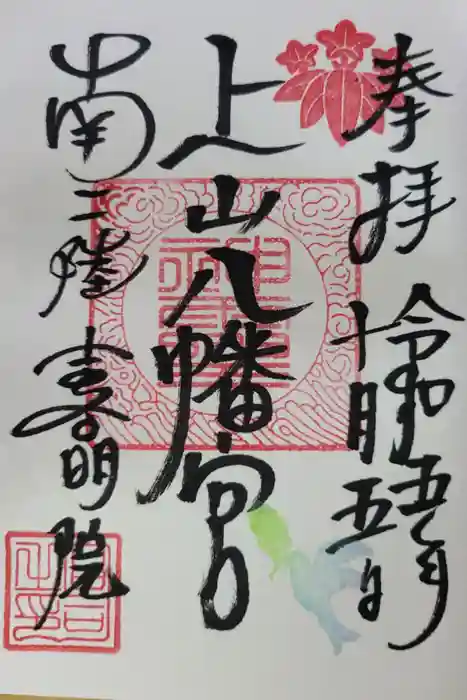 奉拝
令和五年
十月五日
上山八幡宮
南三陸
喜明院